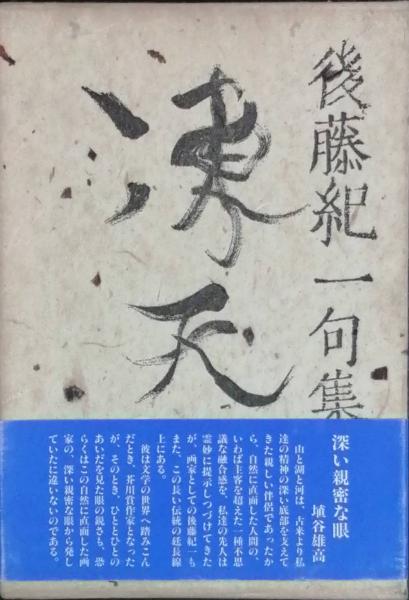 後藤紀一句集
凍天
深い親密な眼
埴谷雄高
山と湖と河は、古来より私
達の精神の深い底部を支えて
きた親しい伴侶であったか
ら、自然に直面した人間の、
いわば主客を超えた一種不思
議な融合感を、私達の先人は
霊妙に提示しつづけてきた
が、画家としての後藤紀一も
また、この長い伝統の延長線
上にある。
彼は文学の世界へ踏みこん
だとき、芥川賞作家となった
が、そのとき、ひととひとの
あいだを見た眼の鋭さも、恐
らくはこの自然に直面した画
家の、深い親密な眼から発し
ていたに違いないのである。